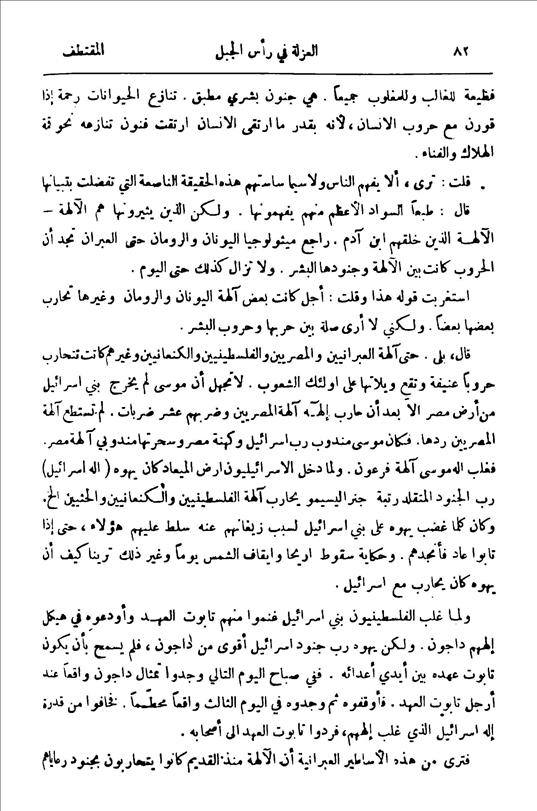 ٨٢ العزلة في رأس الجبل المقتطف
فظيعة للغالب وللمغلوب جميعاً . هي جنون بشري مطبق . تنازع الحيوانات رحمة إذا
قورن مع حروب الانسان ، لأنه بقدر ما ارتقى الانسان ارتقت فنون تنازعه نحو قمة
الهلاك والفناء .
قلت : ترى ، ألا يفهم الناس ولا سيما ساستهم هذه الحقيقة الناصعة التي تفضلت بتبيانها
قال : طبعاً السواد الأعظم منهم يفهمونها . ولكن الذين يثيرونها هم الآلهة —
الآلهة الذين خلقهم ابن آدم . راجع ميثولوجيا اليونان والرومان حتى العبران تجد أن
الحروب كانت بين الآلهة وجنودها البشر . ولا تزال كذلك حتى اليوم .
استغربت قوله هذا وقلت : أجل كانت بعض آلهة اليونان والرومان وغيرها تحارب
بعضها بعضاً . ولكني لا أرى صلة بين حربها وحروب البشر .
قال ، بلى . حتى آلهة العبرانيين والمصريين والفلسطينيين والكنعانيين وغيرهم كانت تتحارب
حروباً عنيفة وتقع ويلاتها على اولئك الشعوب . لا تجهل أن موسى لم يخرج بني اسرائيل
من أرض مصر الاّ بعد أن حارب إلهه آلهة المصريين وضربهم عشر ضربات . لم تستطع آلهة
المصريين ردها . فكان موسى مندوب رب اسرائيل وكهنة مصر وسحرتها مندوبي آلهة مصر.
فغلب اله موسى آلهة فرعون . ولما دخل الاسرائيليون ارض الميعاد كان يهوه ( اله اسرائيل )
رب الجنود المتقلد رتبة جنراليسيمو يحارب آلهة الفلسطينيين والكنعانيين والحثيين الخ.
وكان كلما غضب يهوه على بني اسرائيل لسبب زيغانهم عنه سلط عليهم هؤلاء ، حتى إذا
تابوا عاد فأنجدهم . وحكاية سقوط اريحا وايقاف الشمس يوماً وغير ذلك ترينا كيف أن
يهوه كان يحارب مع اسرائيل .
ولما غلب الفلسطينيون بني اسرائيل غنموا منهم تابوت العهد وأودعوه في هيكل
إلههم داجون . ولكن يهوه رب جنود اسرائيل أقوى من داجون ، فلم يسمح بأن يكون
تابوت عهده بين أيدي أعدائه . ففي صباح اليوم التالي وجدوا تمثال داجون واقعاً عند
أرجل تابوت العهد . فأوقفوه ثم وجدوه في اليوم الثالث واقعاً محطّماً . فخافوا من قدرة
إله اسرائيل الذي غلب إلههم، فردوا تابوت العهد الى أصحابه .
فترى من هذه الأساطير العبرانية أن الآلهة منذ القديم كانوا يتحاربون بجنود رعاياهم